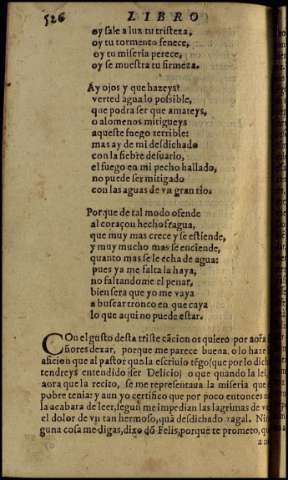 526 LIBRO
oy sale a luz tu tristeza,
oy tu tormento fenece,
oy tu miseria perece,
oy se muestra tu firmeza.
Ay ojos y que hazeys?
verted agua lo possible,
que podra ser que amateys,
o alomenos mitigueys
aqueste fuego terrible:
mas ay de mi desdichado
con la fiebre desuario,
el fuego en mi pecho hallado,
no puede ser mitigado
con las aguas de vn gran rio.
Porque de tal modo ofende
al coraçon hecho fragua,
que muy mas crece y se estiende,
y muy mucho mas se enciende,
quanto mas se le echa de agua:
pues ya me falta la haya,
no faltandome el penar,
bien sera que yo me vaya
a buscar tronco en que caya
lo que aqui no puede estar.
COn el gusto desta triste cãcion os quiero por aora
ñores dexar, porque me parece buena. o lo haze
aficion que al pastor que la escriuio tẽgo (que por lo dich
tendreys entendido ser Delicio) o que quando la le
aora que la recito, se me representaua la miseria que
pobre tenia: y aun yo certifico que por poco entonces
la acabara de leer, segun me impedian las lagrimas de
el dolor de vn tan hermoso, quã desdichado zagal. Nin
guna cosa me digas, dixo dõ Felis, porque te prometo, qu